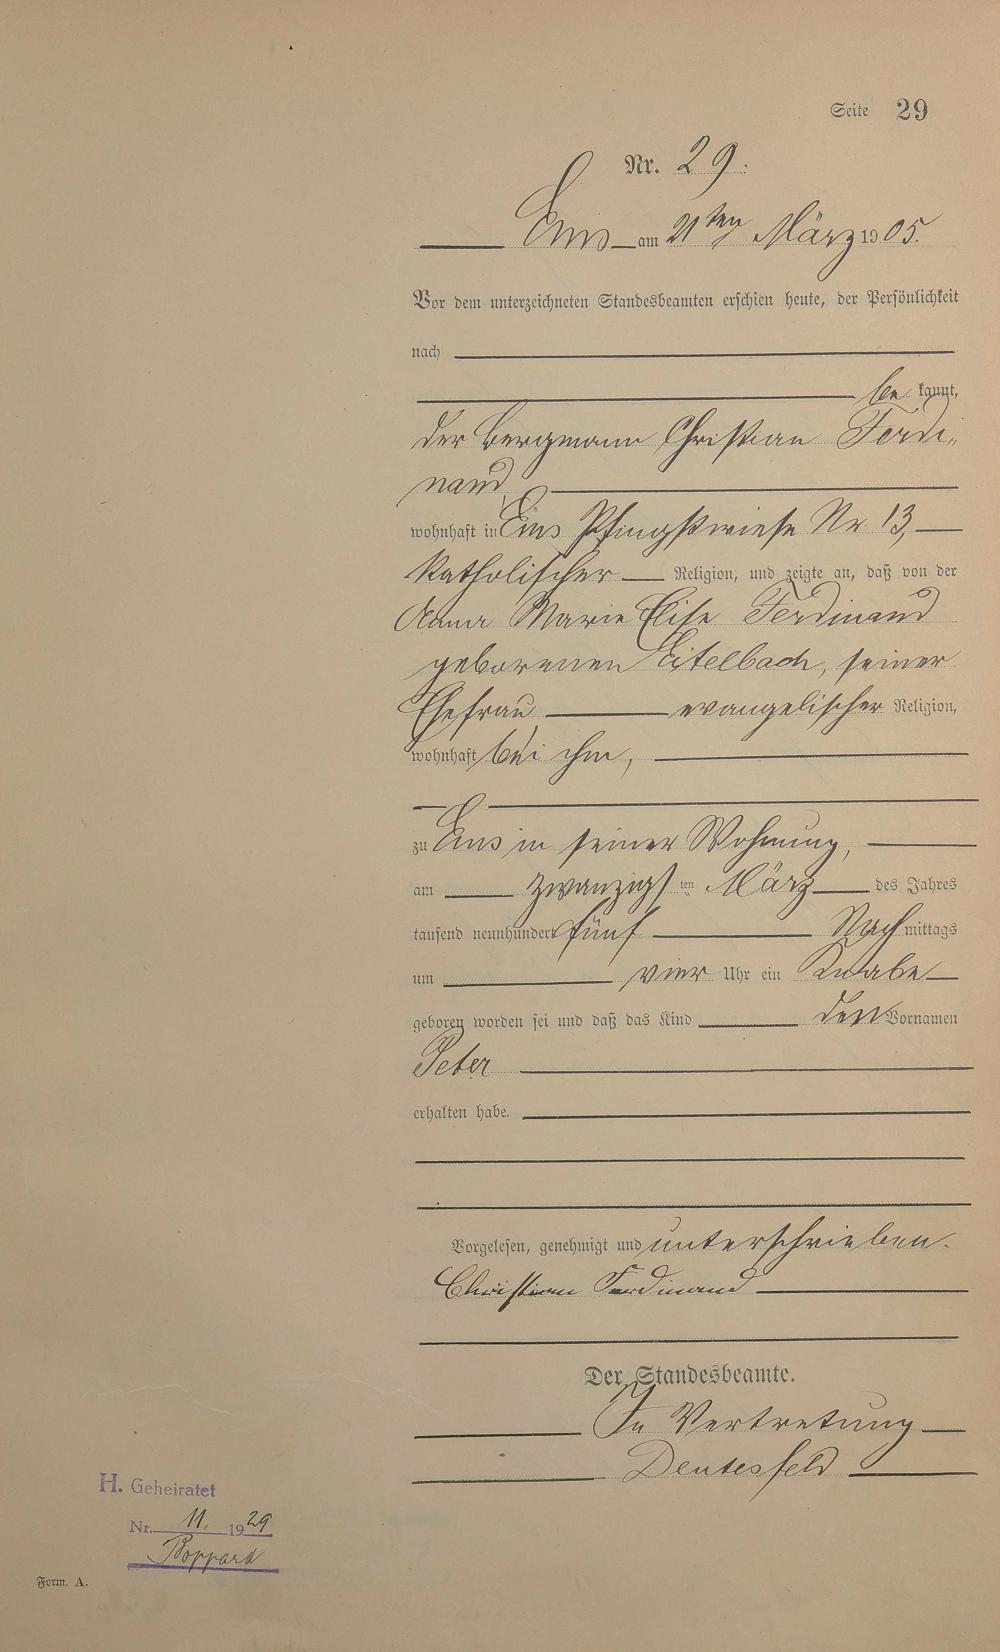 Seite 29
Nr. 29.
Ems am 21ten März 1905.
Vor dem unterzeichneten Standesbeamten erschien heute, der Persönlichkeit
nach
be kannt,
der Bergmann Christian Ferdi„
nand,
wohnhaft in Ems Pfingstwiese Nr 13,
katholischer Religion, und zeigte an, daß von der
Anna Marie Elise Ferdinand
geborenen Eitelbach, seiner
Ehefrau evangelischer Religion,
wohnhaft bei ihm,
zu Ems in seiner Wohnung,
am zwanzigsten März des Jahres
tausend neunhundert fünf Nachmittags
um vier Uhr ein Knabe
geboren worden sei und daß das Kind den Vornamen
Peter
erhalten habe.
Vorgelesen, genehmigt und unterschrieben.
Christian Ferdinand
Der Standesbeamte.
In Vertretung
Deutesfeld
H. Geheiratet
Nr. 11. 1929
Boppard
Form. A.